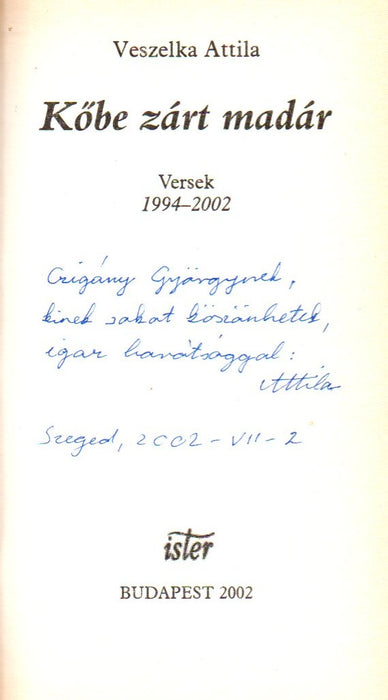 Veszelka Attila
Kőbe zárt madár
Versek
1994–2002
Czigány Györgynek,
kinek sokat köszönhetek,
igaz barátsággal:
Attila
Szeged, 2002-VII-2
ister
BUDAPEST 2002